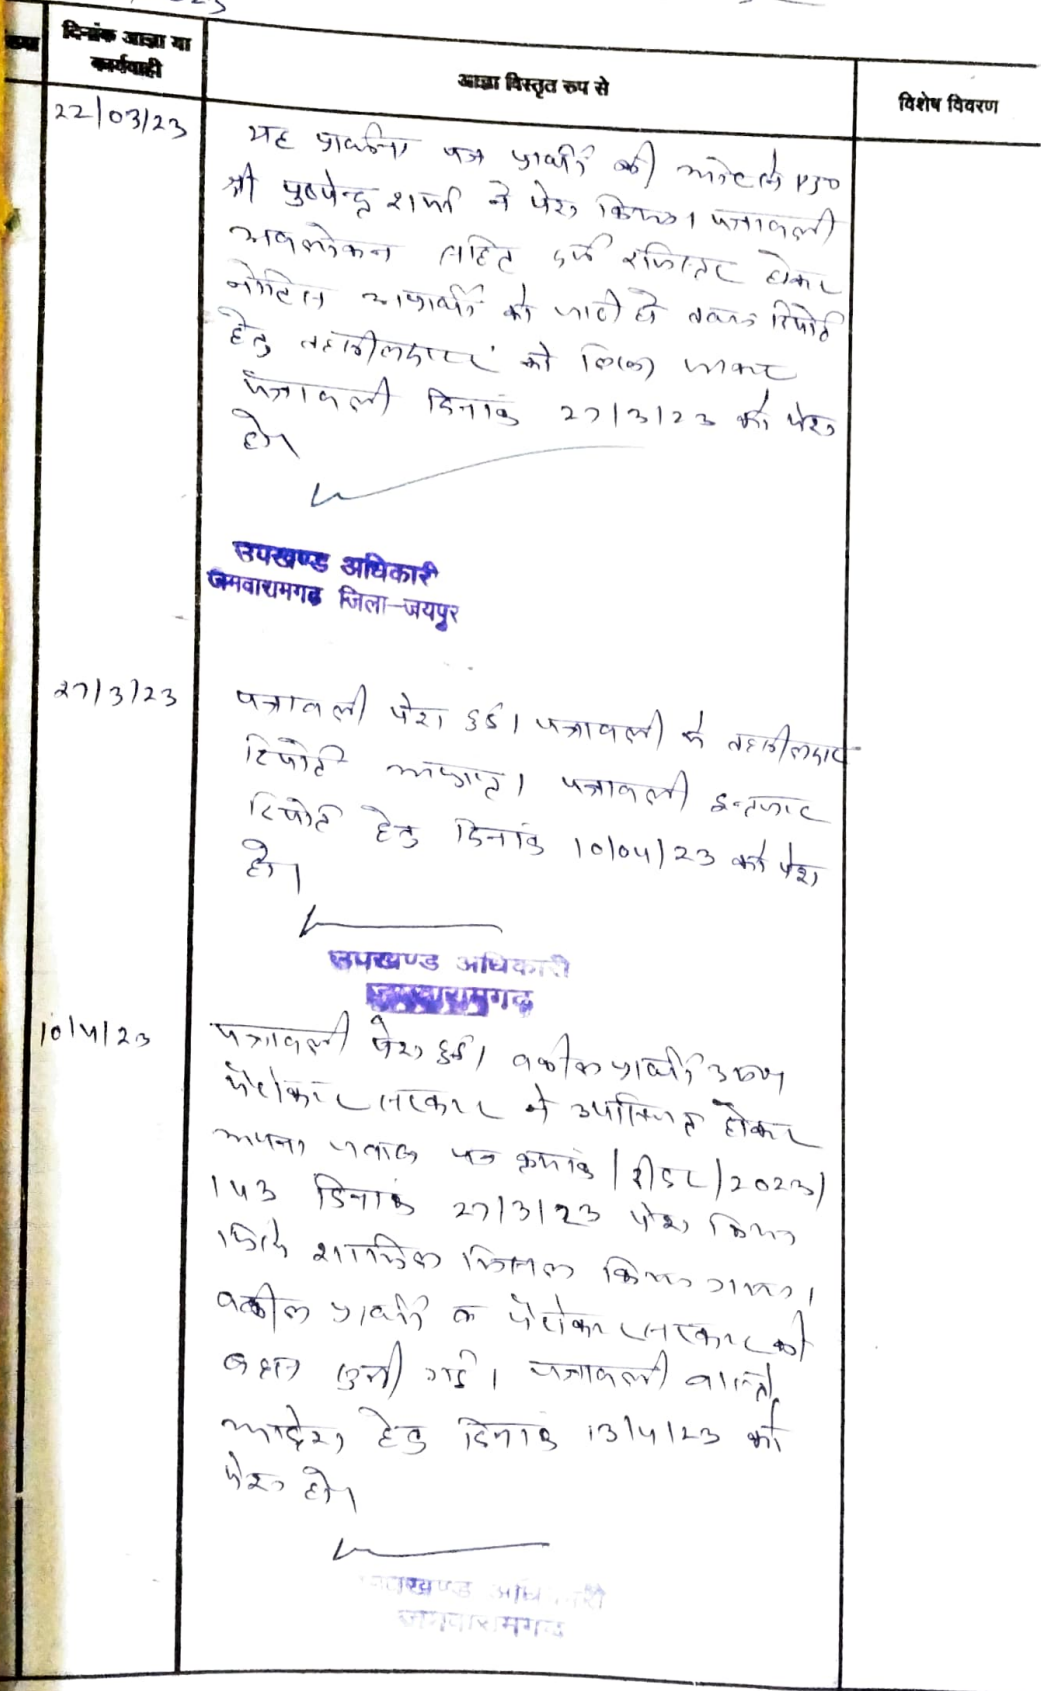 दिनांक आज्ञा या
कार्यवाही
आज्ञा विस्तृत रुप से
विशेष विवरण
22/03/23
यह प्रार्थना पत्र प्रार्थी की ओर से
श्री पुष्पेन्द्र शर्मा ने पेश किया। पत्रावली
अवलोकन सहित दर्ज रजिस्टर होकर
नोटिस अप्रार्थी को जारी हो तथा रिपोर्ट
हेतु तहसीलदार को लिखा जाकर
पत्रावली दिनांक 27/3/23 को पेश
हो।
उपखण्ड अधिकारी
जमवारामगढ जिला-जयपुर
27/3/23
पत्रावली पेश हुई। पत्रावली में तहसीलदार
रिपोर्ट अप्राप्त। पत्रावली इन्तजार
रिपोर्ट हेतु दिनांक 10/04/23 को पेश
हो।
उपखण्ड अधिकारी
जमवारामगढ
10/4/23
पत्रावली पेश हुई। वकील प्रार्थी उपस्थित
पैरोकार सरकार ने उपस्थित होकर
अपना जवाब पत्र क्रमांक /रीडर/2023/
143 दिनांक 27/3/23 पेश किया
जिसे शामिल मिसल किया गया।
वकील प्रार्थी व पैरोकार सरकार की
बहस सुनी गई। पत्रावली वास्ते
आदेश हेतु दिनांक 13/4/23 को
पेश हो।
उपखण्ड अधिकारी
जमवारामगढ